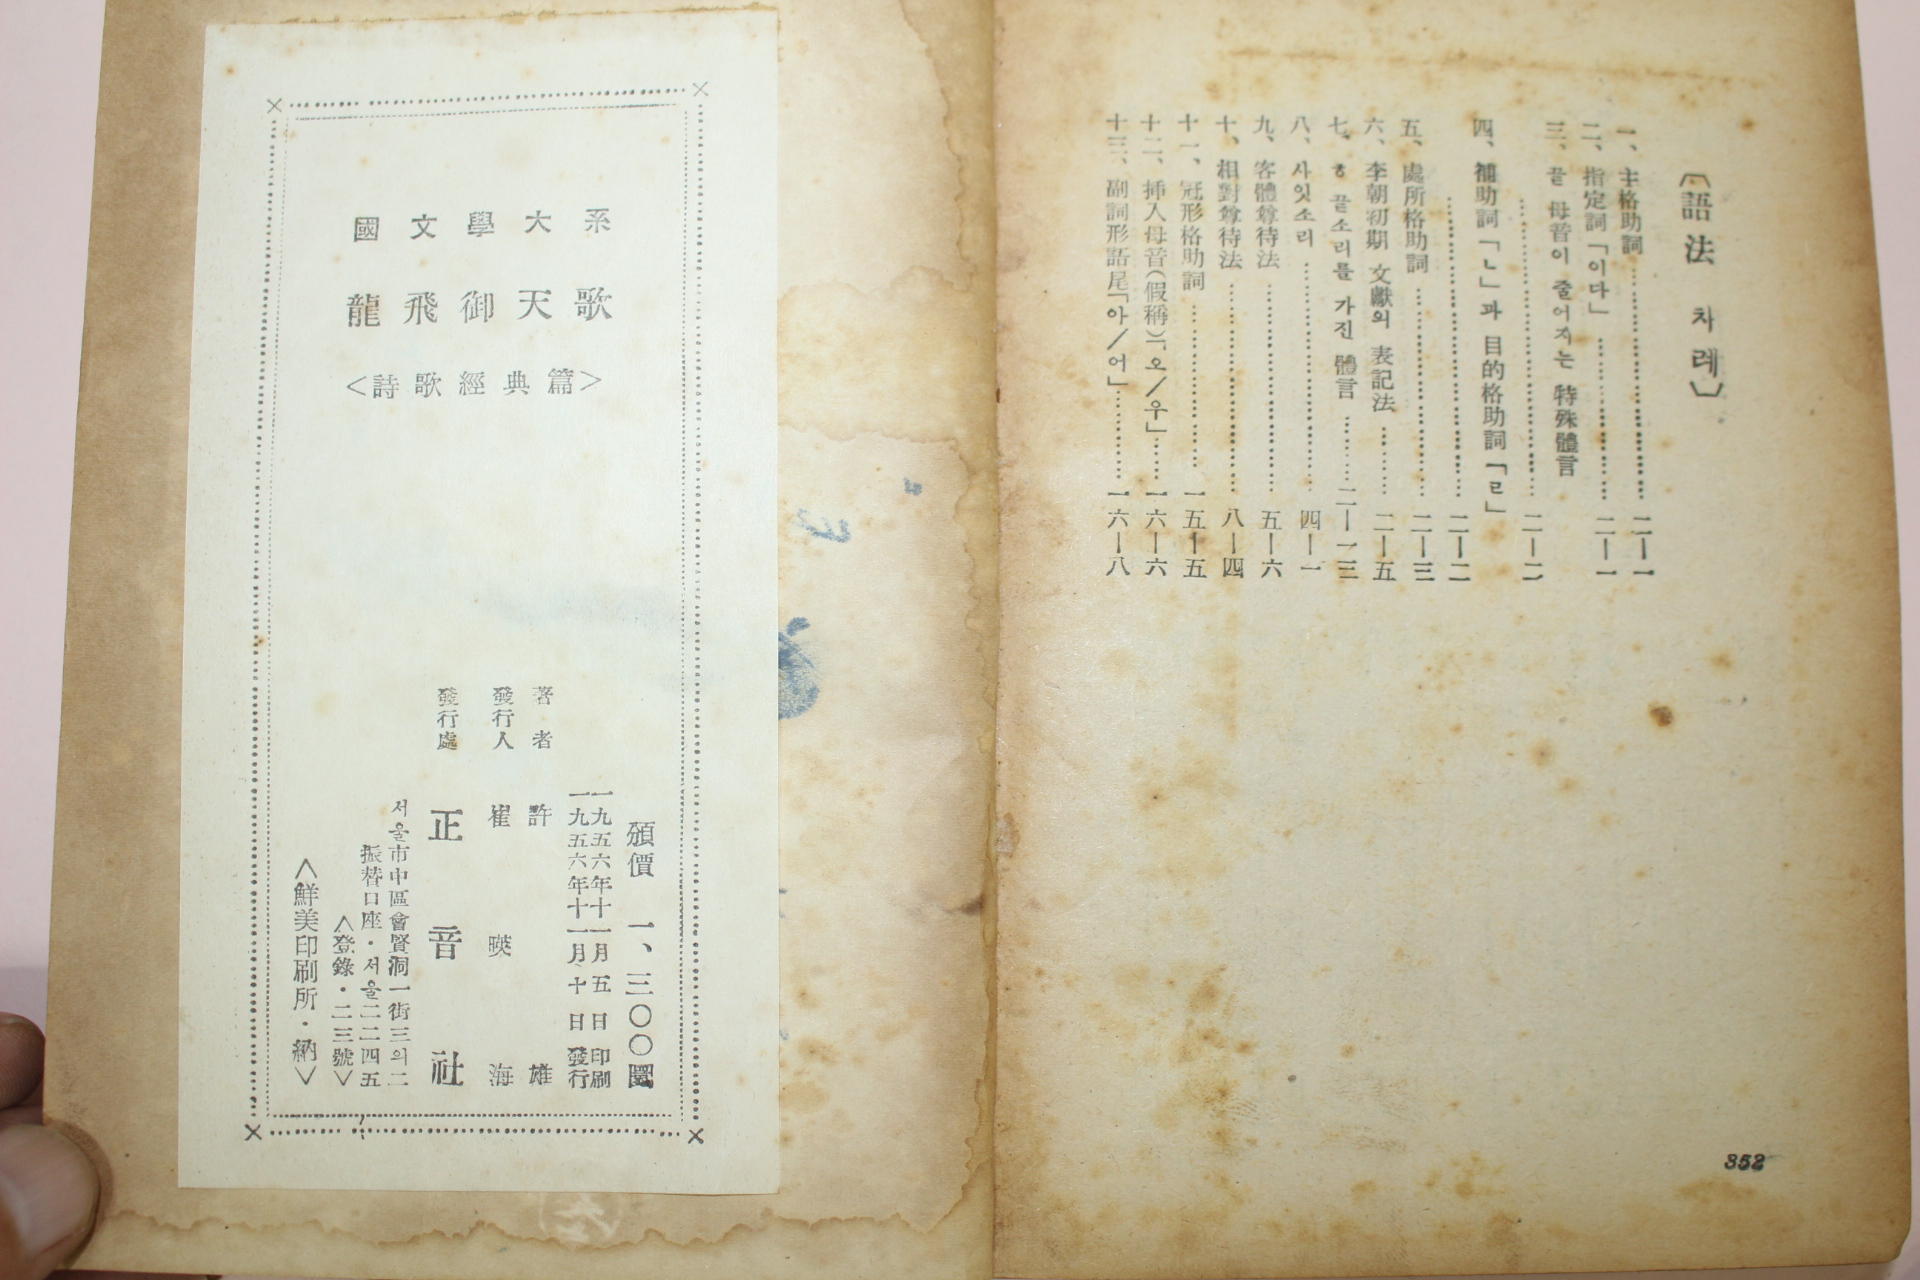 〔語法 차례〕
一、主格助詞……二—一
二、指定詞「이다」……二—一
三、끝 母音이 줄어지는 特殊體言
……二—二
四、補助詞「ㄴ」과 目的格助詞「ㄹ」
……二—二
五、處所格助詞……二—三
六、李朝初期 文獻의 表記法……二—五
七、ㅎ 끝소리를 가진 體言……二—一三
八、사잇소리……四—一
九、客體尊待法……五—六
十、相對尊待法……八—四
十一、冠形格助詞……一五—五
十二、挿入母音(假稱)「오/우」……一六—六
十三、副詞形語尾「아/어」……一六—八
352
國文學大系
龍飛御天歌
<詩歌經典篇>
頒價 一、三〇〇圜
一九五六年十一月五日 印刷
一九五六年十一月十日 發行
著者 許雄
發行人 崔暎海
發行處 正音社
서울市中區會賢洞一街三의二
振替口座·서울二二四五
<登錄·二三號>
<鮮美印刷所·納>